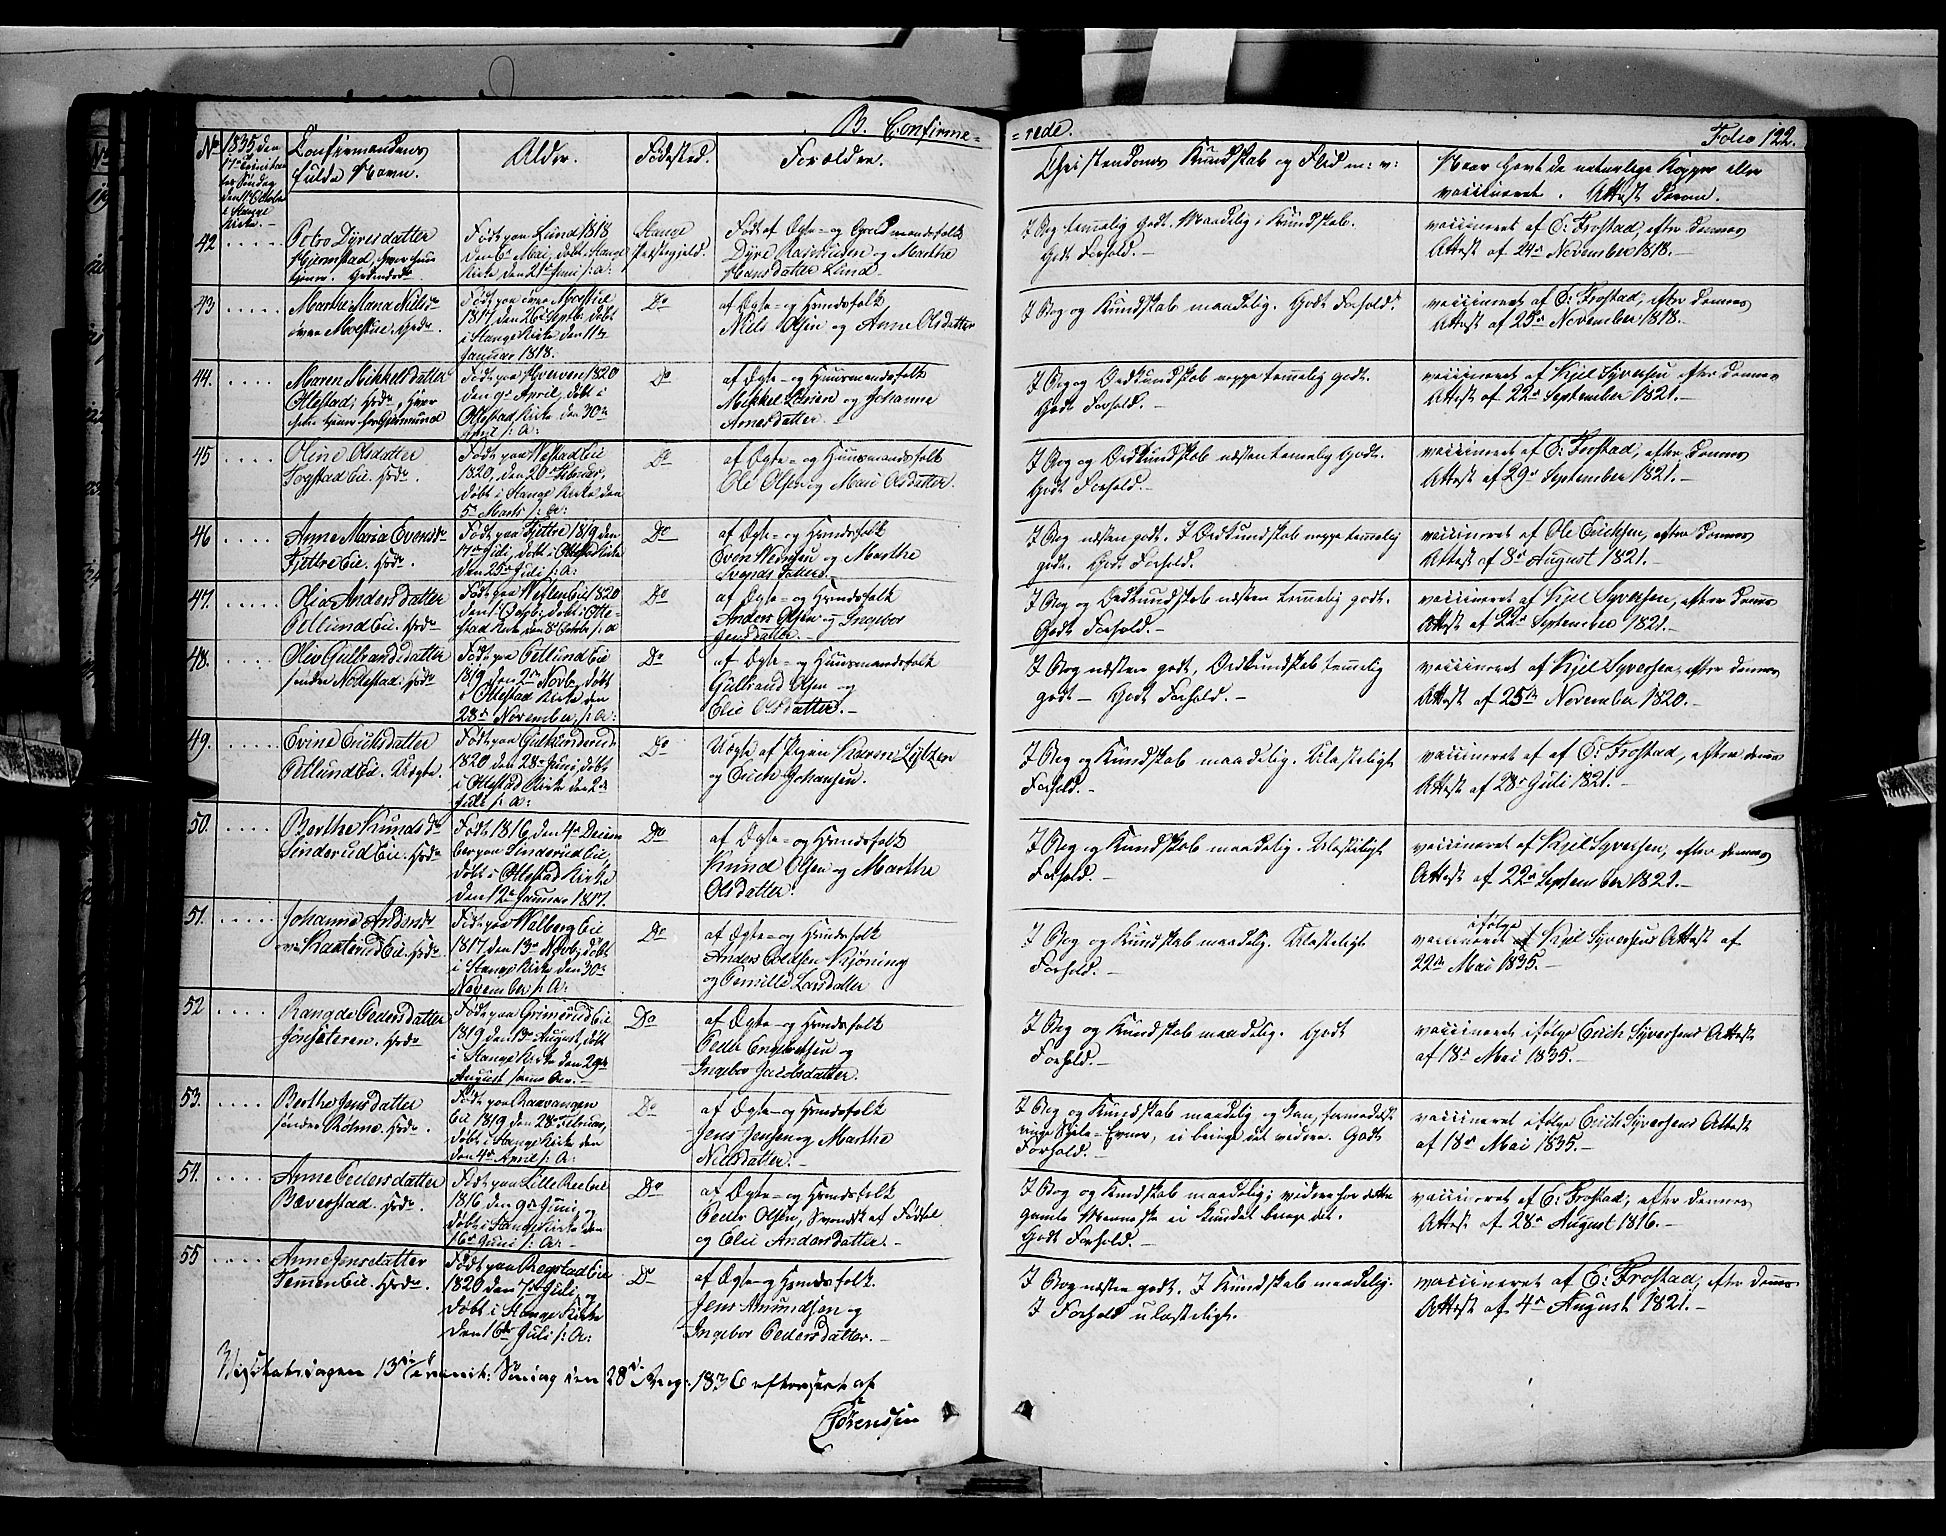 B. Confirme-
-rede.
Folio 122.
No
1835, den
17de Trinitatis
Søndag
den 11 October
i Stange
Kirke.-
Confirmandens
fulde Navn.
Alder.
Fødested.
Forældre.
Christendoms Kundskab og Flid m: v:
Naar havt de naturlige Kopper eller
vaccineret. Attest derom.
42 .....
Dyresdatter
Født paa Lund 1818
den 6te Mai, døbt Stange
Kirke den 21de Juni s: A:
Stange
Præstegjeld.
Født af Ægte- og
Dyre Rasmusen og Marthe
Hansdatter Lund
I Bog temmelig godt. Maadelig i Kundskab.
Godt Forhold.-
vaccineret af E: Frostad, efter dennes
Attest af 24de November 1818.-
43 .....
Marthe Maria Nielsdr
øvre Moestue.
Født paa øvre Moestue
1817, den 26de Septbr. døbt
i Stange Kirke den 11te
Januar 1818.
Do
af Ægte- og
Niels Olsen og Anne Olsdatter
I Bog og Kundskab maadelig. Godt Forhold.
vaccineret af E: Frostad, efter dennes
Attest af 25de November 1818.-
44. ....
Maren Mikkelsdatter
Ottestad,
Født paa Hverven 1820
den 9de April, døbt i
Ottestad Kirke den 30te
April s: A:
Do
af Ægte- og Huusmandsfolk
Mikkel Larsen og Johanne
Arnesdatter.-
I Bog og Ordkundskab neppe temmelig godt.
Godt Forhold.-
vaccineret af Kjel Syversen efter dennes
Attest af 22de September 1821.-
45 .....
Oline Olsdatter
Sogstad Eie.
1820, den 20de Februar,
døbt i Stange Kirke den
5te Marts s: A:
Do
af Ægte- og Huusmandsfolk
Ole Olsen og Mari Olsdatter.
I Bog og Ordkundskab næsten temmelig godt.
Godt Forhold.-
vaccineret af E: Frostad, efter dennes
Attest af 29de September 1821.-
46 .....
Anne Maria Evensdr
Fjettre Eie.
Født paa Fjettre 1819 den
17de Juli, døbt i Ottestad Kirke
den 25de Juli s: A:
Do
af Ægte- og
Even og Marthe
Svendsdatter
I Bog næsten godt. I Ordkundskab neppe temmelig
godt. Godt Forhold.
vaccineret af Ole Ericksen, efter dennes
Attest af 8de August 1821.-
47. .....
Olia Andersdatter
Petlund Eie.
stad Kirke den 8de October s: A
Do
af Ægte- og
Anders Olsen og Ingebor
Jensdatter.-
I Bog og Ordkundskab næsten temmelig godt.
Godt Forhold.-
vaccineret af Kjel Syversen, efter dennes
Attest af 22de September 1821.-
48. .....
Oliv Gulbrandsdatter
søndre Nøttestad.
Født paa Petlund Eie
1819 den 2den Novbr, døbt
i Ottestad Kirke den
28de November, s: A:
Do
af Ægte- og Huusmandsfolk
Gulbrand Olsen og
Elie Olsdatter.-
I Bog næsten godt, Ordkundskab temmelig
godt - Godt Forhold.-
vaccineret af Kjel Syversen, efter dennes
Attest af 25de November 1820.-
49. .....
Evine Ericksdatter
Petlund Eie. Uægte.
1820 den 28de Juni, døbt
i Ottestad Kirke den
Juli s: A:
Do
Uægte af Pigen Karen
og Erich Johansen.
I Bog og Kundskab maadelig. Ulasteligt
Forhold.-
vaccineret af af E: Frostad, efter dennes
Attest af 28de Juli 1821.-
50. ....
Berthe Knudsdr
Sinderud Eie.
Født 1816 den 4de Decem
ber paa Sinderud Eie,
døbt i Ottestad Kirke
den 12te Januar 1817.
Do
af Ægte- og
Knud Olsen og Marthe
Olsdatter.
I Bog og Kundskab maadelig. Ulasteligt
Forhold.-
vaccineret af Kjel Syversen, efter dennes
Attest af 22de September 1821.-
51. .....
Johanne Andersdr
Født paa Walberg Eie
1817 den 13de Novbr, døbt
i Stange Kirke den 30te
November s: A:
Do
af Ægte- og
Anders
og Pernille Larsdatter
I Bog og Kundskab maadelig. Ulasteligt
Forhold.-
vaccineret ifølge Kjel Syversens Attest af
22de Mai 1835.-
52 ....
Rangde Pedersdatter
Født paa Grimerud Eie
1819 den 13de August, døbt
i Stange Kirke den 29de
August samme Aar.-
Do
af Ægte- og
Peder Engebretsen og
Ingebor Jacobsdatter.
I Bog og Kundskab maadelig. Godt
Forhold.-
vaccineret ifølge Erich Syversens Attest
af 18de Mai 1835.-
53. ....
Berthe Jensdatter
søndre Rolme.
Eie 1819 den 28de Februar,
døbt i Stange Kirke den
den 4de April s: A:
Do
af Ægte- og
Jens Jensen og Marthe
Nielsdatter.-
I Bog og Kundskab maadelig og kan, formedelst
ringe Sjele-Evner, ei bringe det videre. Godt
Forhold.-
vaccineret ifølge Erich Syversens Attest
af 18de Mai 1835.-
54. ....
Anne Pedersdatter
Bæverstad.
1816 den 9de Juni, og
døbt i Stange Kirke den
16de Juni s: A:-
Do
af Ægte- og
Peder Olsen, Svensk af Fødsel
og Elie Andersdatter.-
I Bog og Kundskab maadelig; videre har dette
gamle Menneske ei kundet bringe det.
Godt Forhold.-
vaccineret af E: Frostad, efter dennes
Attest af 28de August 1816.-
55 ....
Anne Jensdatter
Temmen Eie.
1820 den 7de Juli, og
døbt i Stange Kirke
den 16de Juli s: A:
Do
af Ægte- og
Jens Amundsen og
Ingebor Pedersdatter.-
I Bog næsten godt. I Kundskab maadelig.
I Forhold ulasteligt.
vaccineret af E: Frostad, efter dennes
Attest af 4de August 1821.-
Visitatsdagen 13de Trinit: Søndag den 28de Aug: 1836 efterseet af
Sørenssen